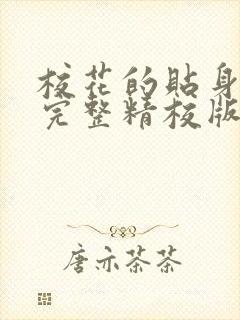 校花的贴身
完整精校版
唐亦茶茶